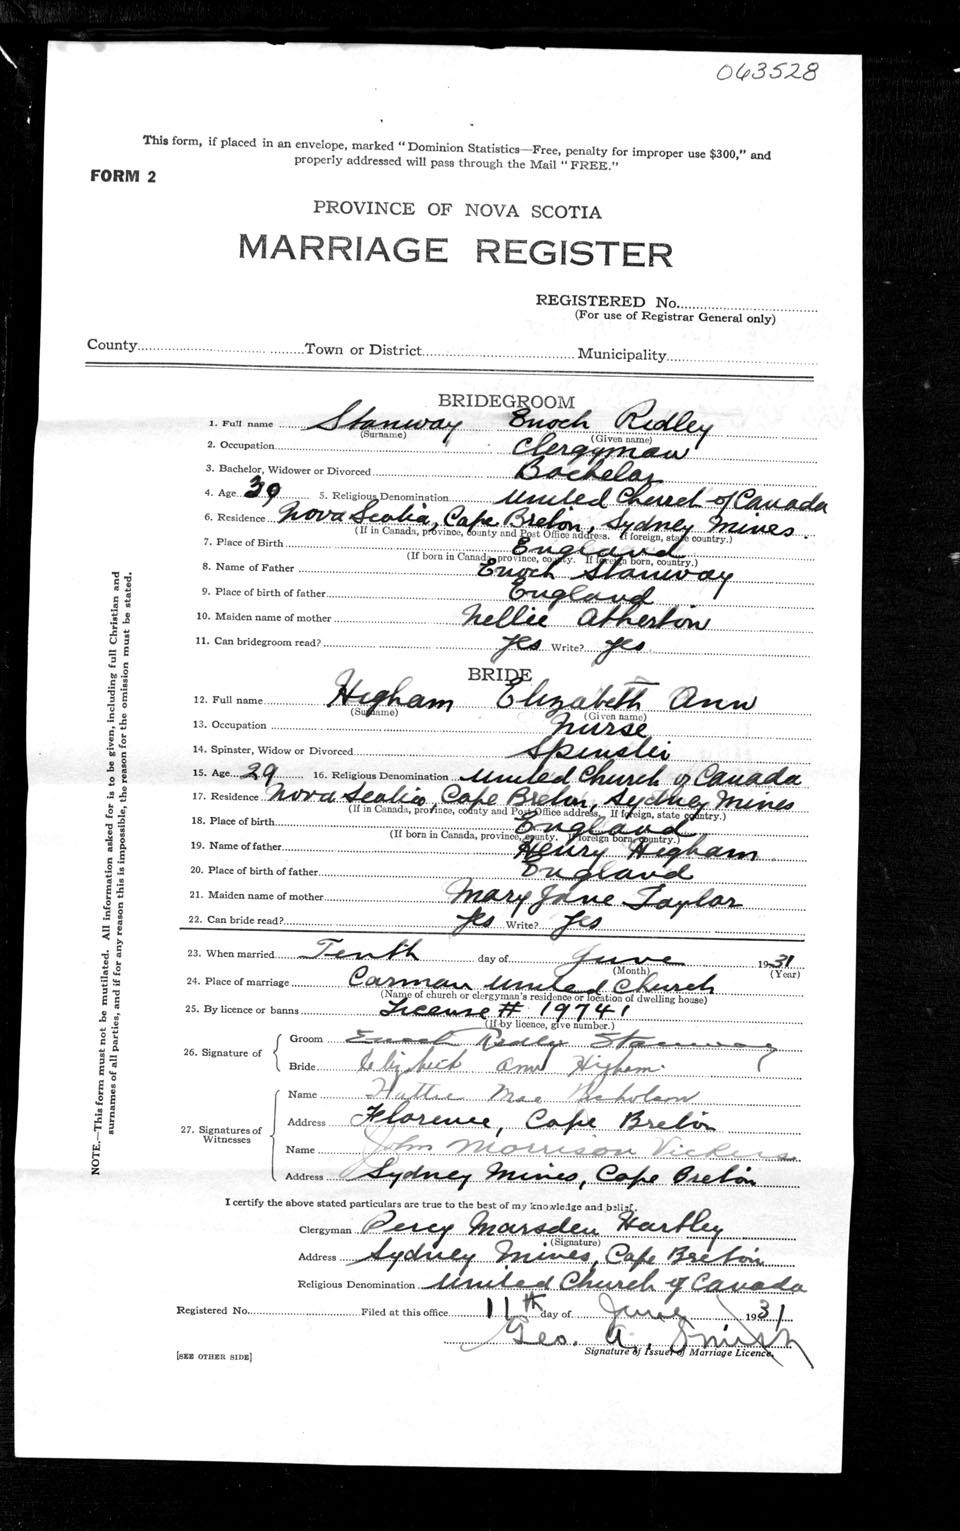 063528
This form, if placed in an envelope, marked "Dominion Statistics—Free, penalty for improper use $300," and
properly addressed will pass through the Mail "FREE."
FORM 2
PROVINCE OF NOVA SCOTIA
MARRIAGE REGISTER
REGISTERED No.
(For use of Registrar General only)
County Town or District Municipality
BRIDEGROOM
1. Full name Stanway Enoch Ridley
(Surname) (Given name)
2. Occupation Clergyman
3. Bachelor, Widower or Divorced Bachelor
4. Age 39 5. Religious Denomination United Church of Canada
6. Residence Nova Scotia, Cape Breton, Sydney Mines.
(If in Canada, province, county and Post Office address. If foreign, state country.)
7. Place of Birth England
(If born in Canada, province, county. If foreign born, country.)
8. Name of Father Enoch Stanway
9. Place of birth of father England
10. Maiden name of mother Nellie Atherton
11. Can bridegroom read? Yes Write? Yes
BRIDE
12. Full name Higham Elizabeth Ann
(Surname) (Given name)
13. Occupation Nurse
14. Spinster, Widow or Divorced Spinster
15. Age 29 16. Religious Denomination United Church of Canada
17. Residence Nova Scotia, Cape Breton, Sydney Mines
(If in Canada, province, county and Post Office address. If foreign, state country.)
18. Place of birth England
(If born in Canada, province, county. If foreign born, country.)
19. Name of father Henry Higham
20. Place of birth of father England
21. Maiden name of mother Mary Jane Taylor
22. Can bride read? Yes Write? Yes
23. When married Tenth day of June 1931
(Month) (Year)
24. Place of marriage Carman United Church
(Name of church or clergyman's residence or location of dwelling house)
25. By licence or banns License # 19741
(If by licence, give number.)
26. Signature of
Groom Enoch Ridley Stanway
Bride Elizabeth Ann Higham
27. Signatures of Witnesses
Name Hattie Mae Nicholson
Address Florence, Cape Breton
Name John Morrison Vickers
Address Sydney Mines, Cape Breton
I certify the above stated particulars are true to the best of my knowledge and belief.
Clergyman Percy Marsden Hartley
(Signature)
Address Sydney Mines, Cape Breton
Religious Denomination United Church of Canada
Registered No. Filed at this office 11th day of June 1931
Geo. A. Smith
Signature of Issuer of Marriage Licence.
[SEE OTHER SIDE]
NOTE.—This form must not be mutilated. All information asked for is to be given, including full Christian and
surnames of all parties, and if for any reason this is impossible, the reason for the omission must be stated.